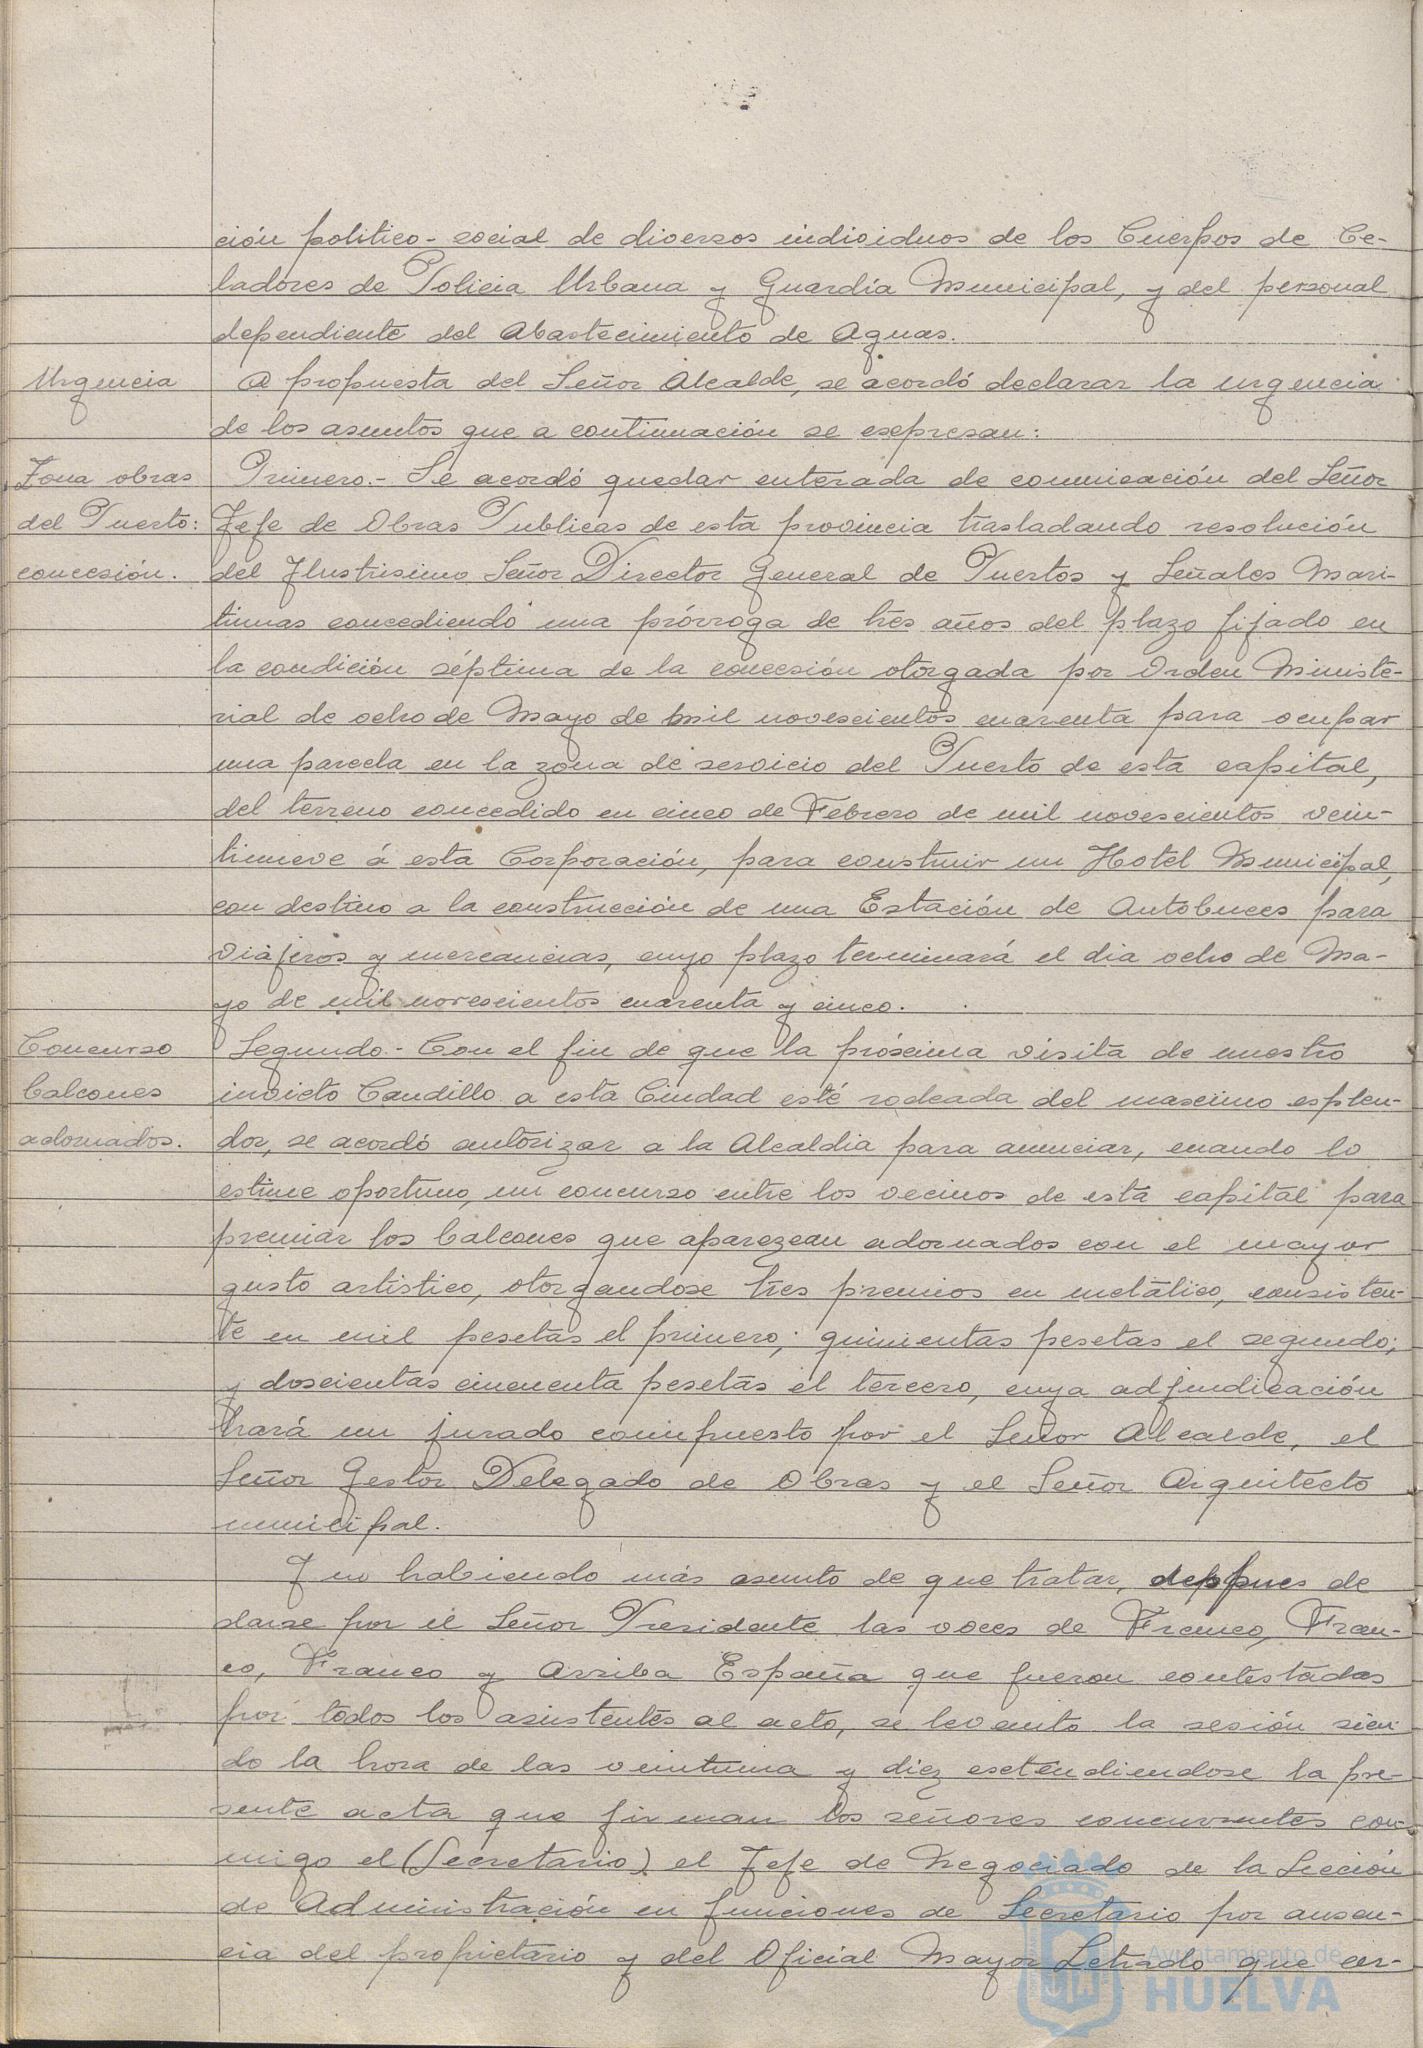 ción politico-social de diversos individuos de los Cuerpos de Ce-
ladores de Policia Urbana y Guardia Municipal, y del personal
dependiente del Abastecimiento de Aguas.
Urgencia
A propuesta del Señor Alcalde, se acordó declarar la urgencia
de los asuntos que a continuación se esepresan:
Zona obras
del Puerto:
concesión.
Primero.- Se acordó quedar enterada de comunicación del Señor
Jefe de Obras Publicas de esta provincia trasladando resolución
del Ilustrisimo Señor Director General de Puertos y Señales Mari-
timas concediendo una prórroga de tres años del plazo fijado en
la condición séptima de la concesión otorgada por Orden Ministe-
rial de ocho de Mayo de mil novescientos cuarenta para ocupar
una parcela en la zona de servicio del Puerto de esta capital,
del terreno concedido en cinco de Febrero de mil novescientos vein-
tinueve á esta Corporación, para construir un Hotel Municipal,
con destino a la construcción de una Estación de Autobuces para
viajeros y mercancias, cuyo plazo terminará el dia ocho de Ma-
yo de mil novescientos cuarenta y cinco.
Concurso
balcones
adornados.
Segundo.- Con el fin de que la próscima visita de nuestro
invicto Caudillo a esta Ciudad esté rodeada del mascimo esplen-
dor, se acordó autorizar a la Alcaldia para anunciar, cuando lo
estime oportuno, un concurso entre los vecinos de esta capital para
premiar los balcones que aparezcan adornados con el mayor
gusto artistico, otorgandose tres premios en metálico, consisten-
te en mil pesetas el primero; quinientas pesetas el segundo;
y doscientas cincuenta pesetas el tercero, cuya adjudicación
hará un jurado compuesto por el Señor Alcalde, el
Señor Gestor Delegado de Obras y el Señor Arquitecto
municipal.
Y no habiendo más asunto de que tratar, deppues de
darse por el Señor Presidente las voces de Franco, Fran-
co, Franco y Arriba España que fueron contestadas
por todos los asistentes al acto, se levanto la sesión sien-
do la hora de las veintiuna y diez esctendiendose la pre-
sente acta que firman los señores concurrentes con-
migo el (Secretario) el Jefe de Negociado de la Sección
de Administración en funciones de Secretario por ausen-
cia del propietario y del Oficial Mayor Letrado que cer-
Ayuntamiento de
HUELVA